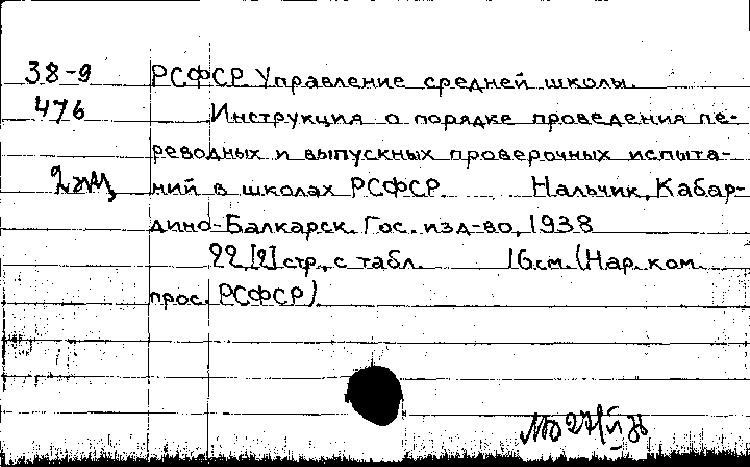 38-9 РСФСР. Управление средней школы.
476 Инструкция о порядке проведения пе-
реводных и выпускных проверочных испыта-
ний в школах РСФСР. Нальчик, Кабар-
дино-Балкарск. Гос. изд-во, 1938
22, [2] стр., с табл. 16 см. (Нар. ком.
прос. РСФСР).